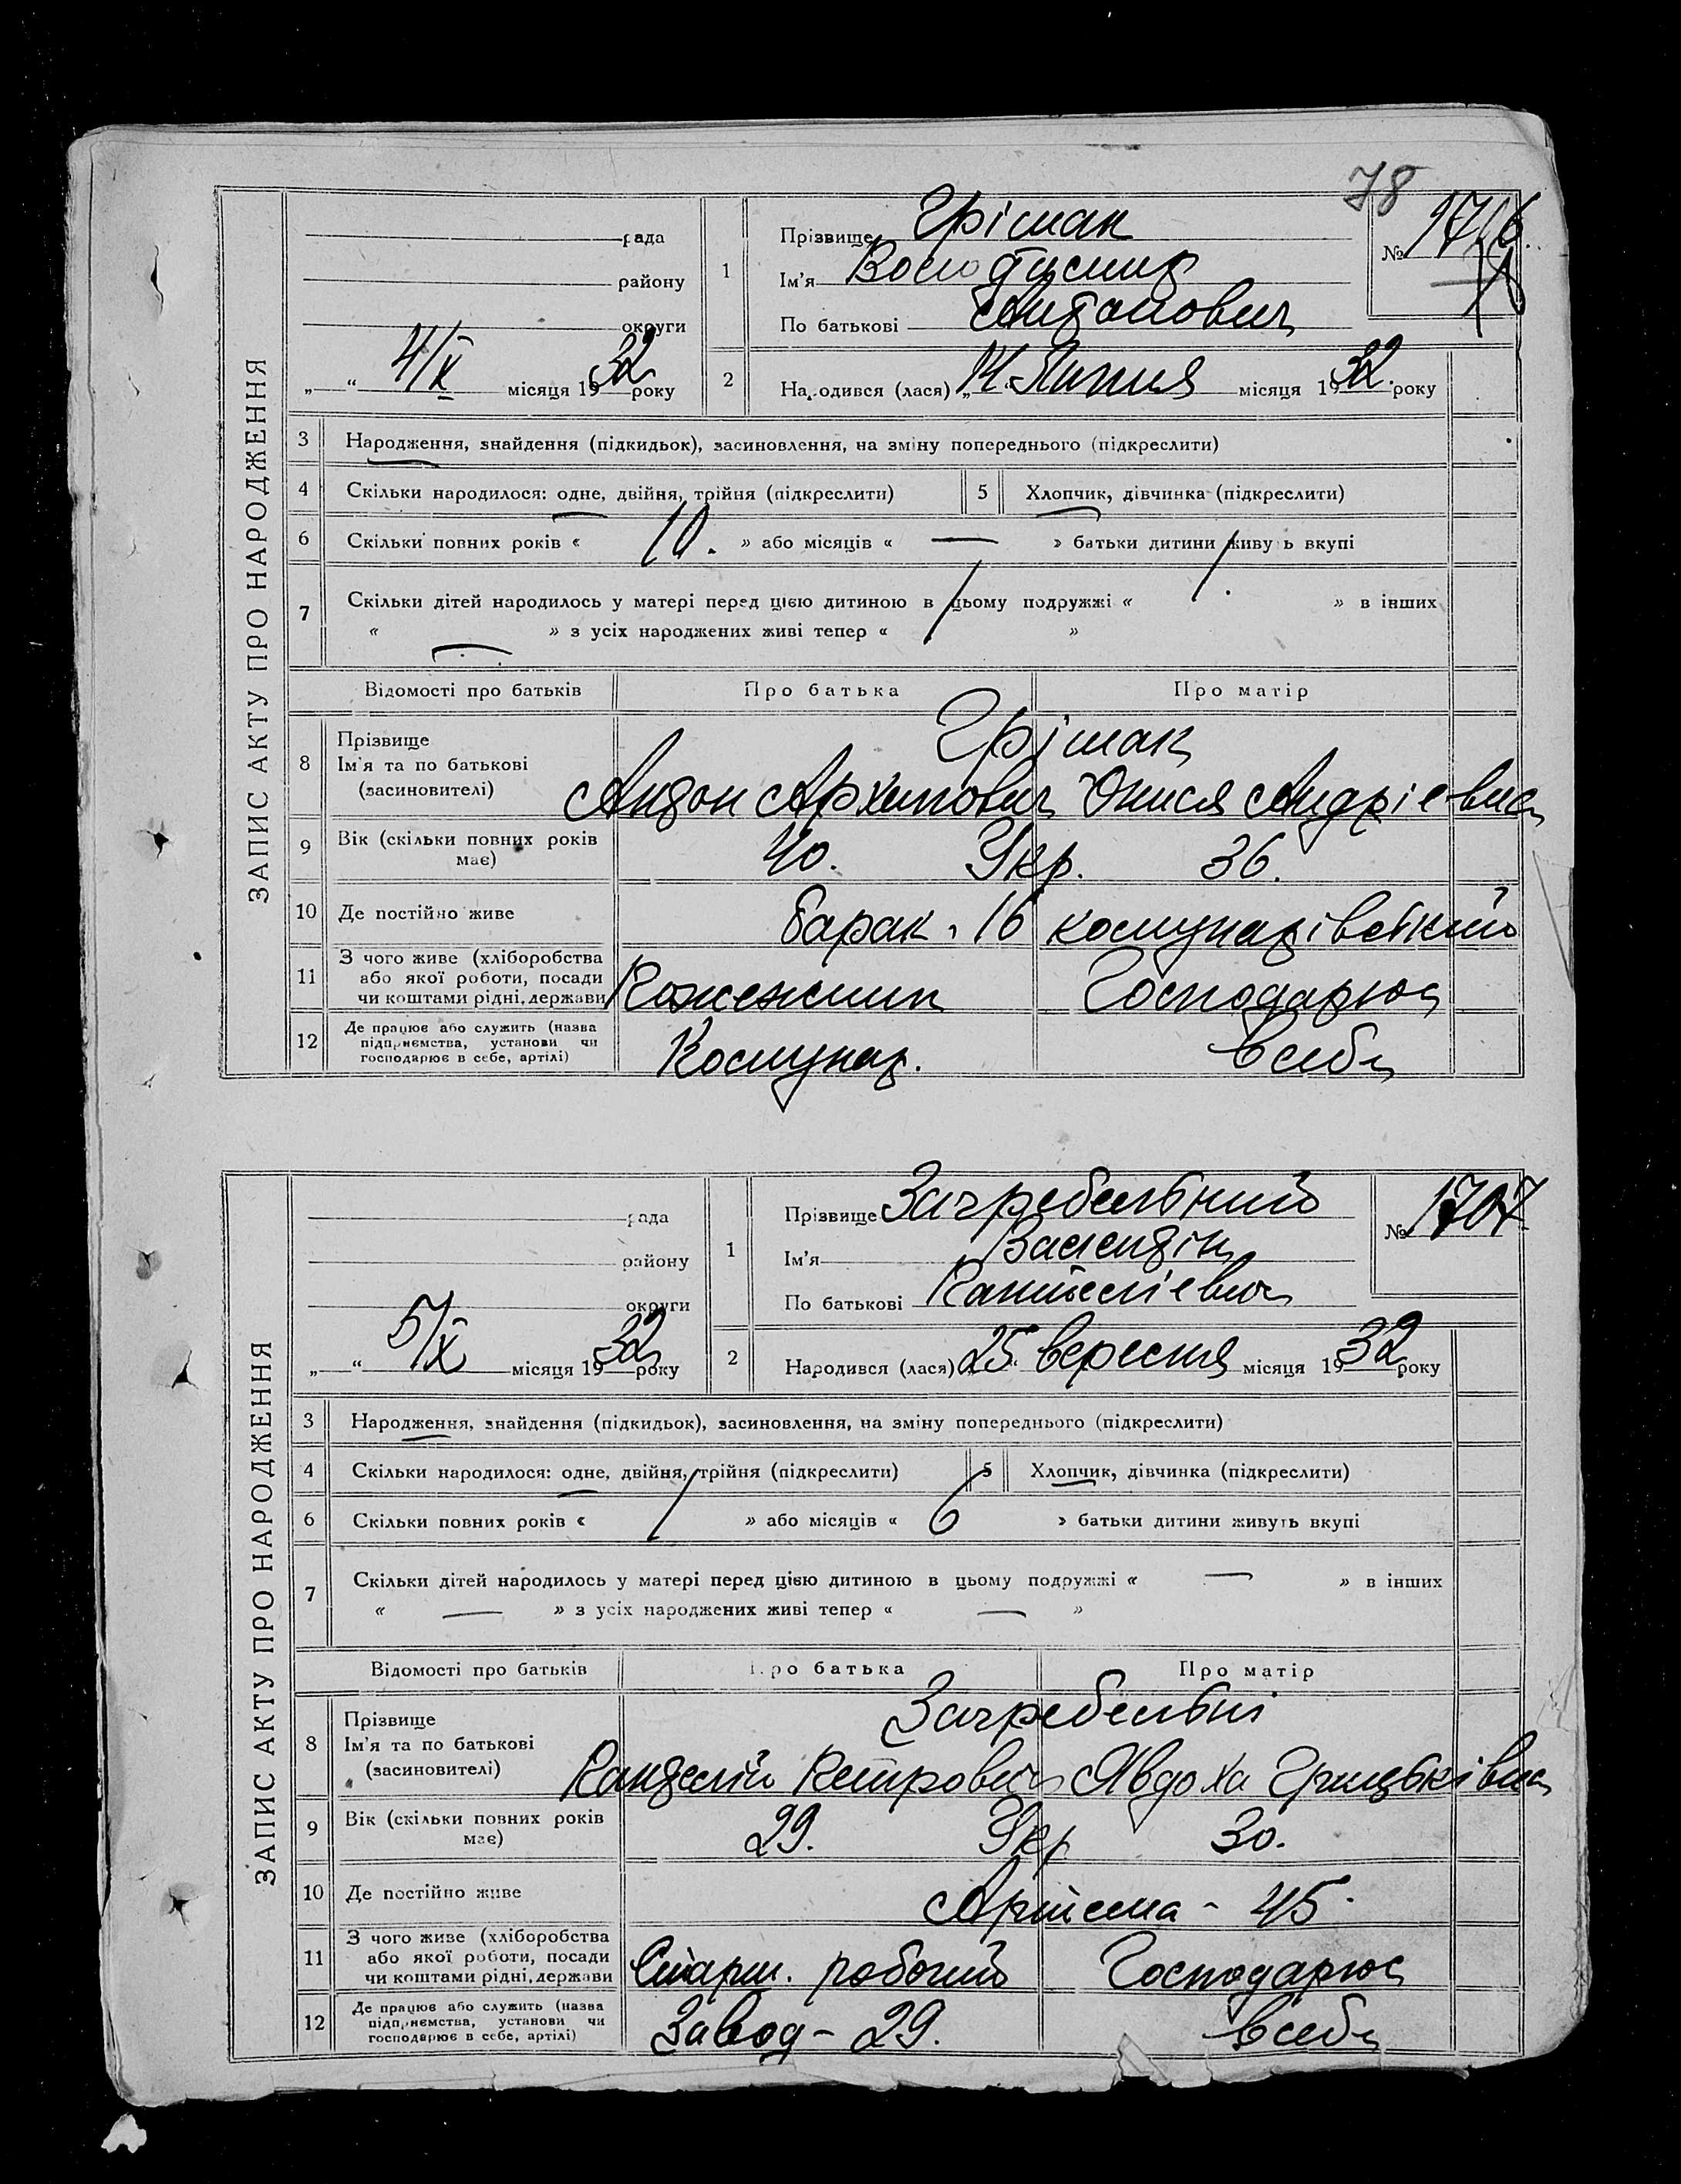 78
ЗАПИС АКТУ ПРО НАРОДЖЕННЯ
рада
району
округи
„ “ 4/X місяця 1932 року
1 Прізвище Грішак
Ім'я Володимир
По батькові Антонович
№
2 Народився (лася) „14 Липня місяця 1932. року
3 Народження, знайдення (підкидьок), засиновлення, на зміну попереднього (підкреслити)
4 Скільки народилося: одне, двійня, трійня (підкреслити) 5 Хлопчик, дівчинка (підкреслити)
6 Скільки повних років « 10. » або місяців « — » батьки дитини живуть вкупі
7 Скільки дітей народилось у матері перед цією дитиною в цьому подружжі « 1. » в інших
« — » з усіх народжених живі тепер « 1 »
Відомості про батьків Про батька Про матір
8 Прізвище Грішак
Ім'я та по батькові
(засиновителі) Андон Архипович Онися Андрієвна
9 Вік (скільки повних років має) 40. Укр. 36.
10 Де постійно живе барак. 16 комунарівський
11 З чого живе (хліборобства або якої роботи, посади чи коштами рідні, держави Господарює
12 Де працює або служить (назва підприємства, установи чи господарює в себе, артілі) Комунар. в себе
ЗАПИС АКТУ ПРО НАРОДЖЕННЯ
рада
району
округи
„ “ 5/X місяця 1932 року
1 Прізвище Загребельний
Ім'я Валентін
По батькові Кантеліевич
№ 1707
2 Народився (лася) „25“ вересня місяця 1932 року
3 Народження, знайдення (підкидьок), засиновлення, на зміну попереднього (підкреслити)
4 Скільки народилося: одне, двійня, трійня (підкреслити) 5 Хлопчик, дівчинка (підкреслити)
6 Скільки повних років « 1 » або місяців « 6 » батьки дитини живуть вкупі
7 Скільки дітей народилось у матері перед цією дитиною в цьому подружжі « — » в інших
« — » з усіх народжених живі тепер « — »
Відомості про батьків Про батька Про матір
8 Прізвище Загребельні
Ім'я та по батькові
(засиновителі) Канделій Петрович Явдоха Грицьківна
9 Вік (скільки повних років має) 29. Укр 30.
10 Де постійно живе Артема - 45
11 З чого живе (хліборобства або якої роботи, посади чи коштами рідні, держави Старш. робочий Господарює
12 Де працює або служить (назва підприємства, установи чи господарює в себе, артілі) Завод - 29. в себе